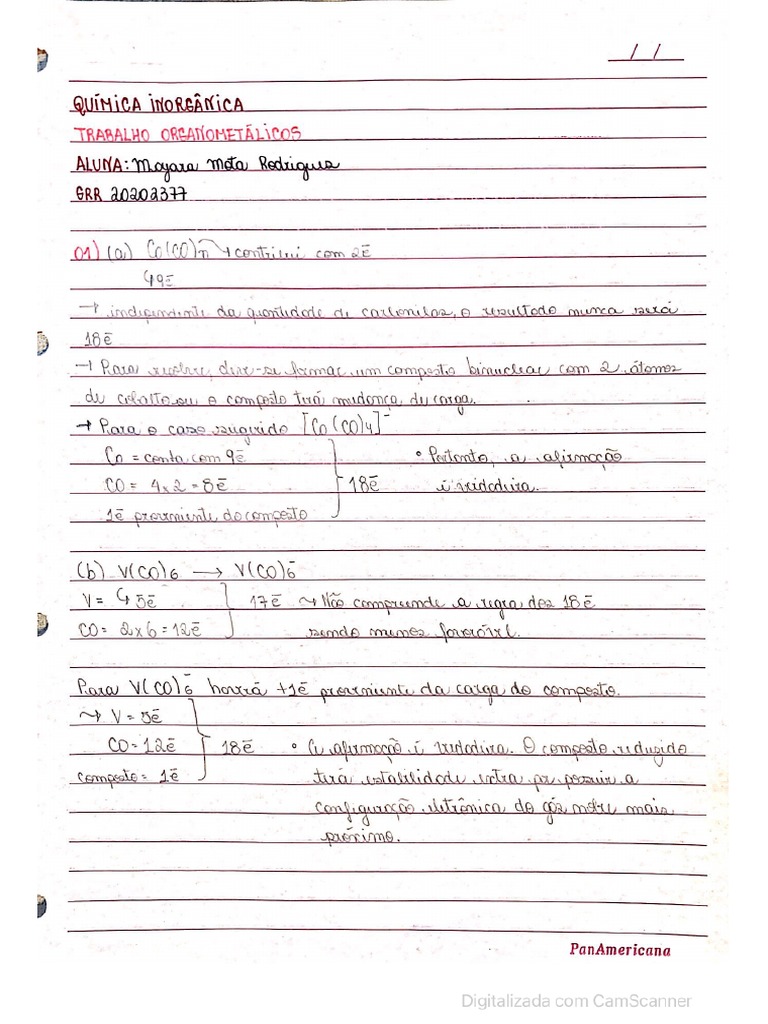 / /
QUÍMICA INORGÂNICA
TRABALHO ORGANOMETÁLICOS
ALUNA: Mayara Mota Rodrigues
GRR 20202377
01) (a) Co(CO)n → contribui com 2ē
↳9ē
→ independente da quantidade de carbonilas, o resultado nunca será
18ē
→ Para resolver, deve-se formar um composto binuclear com 2 átomos
de cobalto ou o composto terá mudança de carga.
→ Para o caso sugerido [Co(CO)4]⁻
Co = conta com 9ē
CO = 4x2 = 8ē
1ē proveniente do composto
18ē
• Portanto, a afirmação
é verdadeira.
(b) V(CO)6 → V(CO)6⁻
V = ↳ 5ē
CO = 2x6 = 12ē
17ē ~> Não compreende a regra dos 18ē
sendo menos favorável.
Para V(CO)6⁻ haverá +1ē proveniente da carga do composto.
~> V = 5ē
CO = 12ē
composto = 1ē
18ē
• A afirmação é verdadeira. O composto reduzido
terá estabilidade extra por possuir a
configuração eletrônica do gás nobre mais
próximo.
PanAmericana
Digitalizada com CamScanner